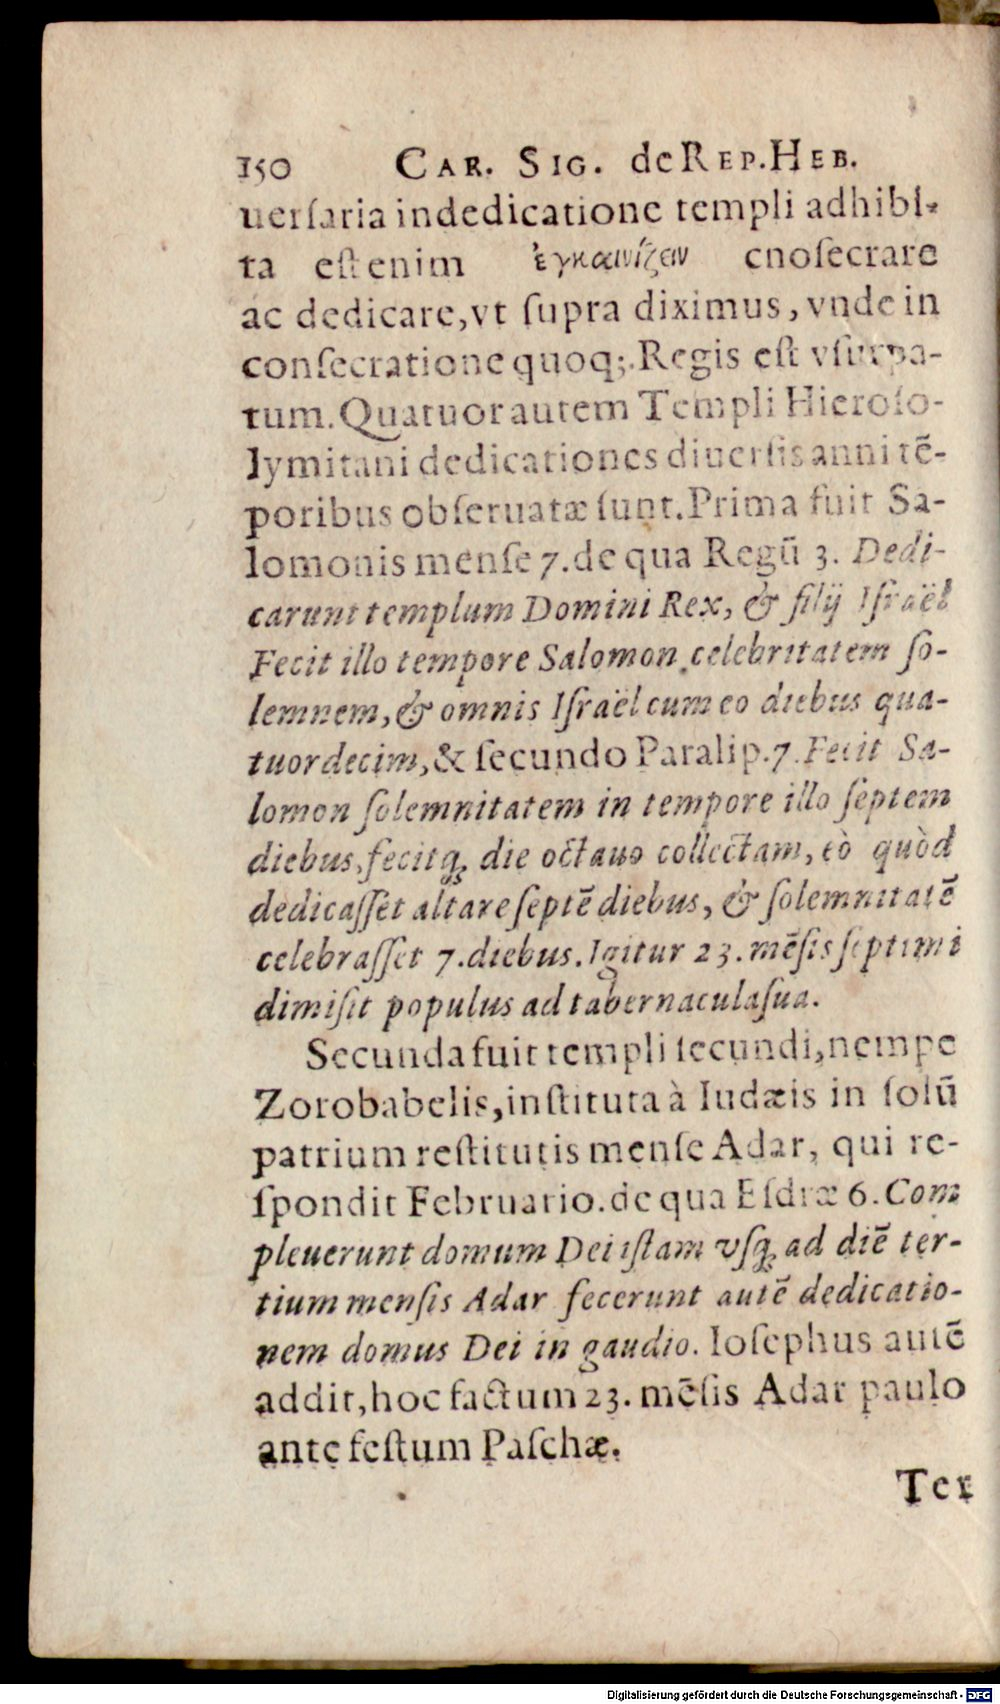 150 CAR. SIG. de REP. HEB.
uerſaria in dedicatione templi adhibi-
ta eſt enim ἐγκαινίζειν cnoſecrare
ac dedicare, vt ſupra diximus, vnde in
conſecratione quoq;. Regis eſt vſurpa-
tum. Quatuor autem Templi Hieroſo-
lymitani dedicationes diuerſis anni tē-
poribus obſeruatæ ſunt. Prima fuit Sa-
lomonis menſe 7. de qua Regū 3. Dedi-
carunt templum Domini Rex, & filij Iſraël
Fecit illo tempore Salomon celebritatem ſo-
lemnem, & omnis Iſraël cum eo diebus qua-
tuordecim, & ſecundo Paralip. 7. Fecit Sa-
lomon ſolemnitatem in tempore illo ſeptem
diebus, fecitq́; die octauo collectam, eò quòd
dedicaſſet altare ſeptē diebus, & ſolemnitatē
celebraſſet 7. diebus. Igitur 23. mēſis ſeptimi
dimiſit populus ad tabernacula ſua.
Secunda fuit templi ſecundi, nempe
Zorobabelis, inſtituta à Iudæis in ſolū
patrium reſtitutis menſe Adar, qui re-
ſpondit Februario. de qua Eſdræ 6. Com
pleuerunt domum Dei iſtam vſq; ad diē ter-
tium menſis Adar fecerunt autē dedicatio-
nem domus Dei in gaudio. Ioſephus autē
addit, hoc factum 23. mēſis Adar paulo
ante feſtum Paſchæ.
Ter
Digitalisierung gefördert durch die Deutsche Forschungsgemeinschaft - DFG